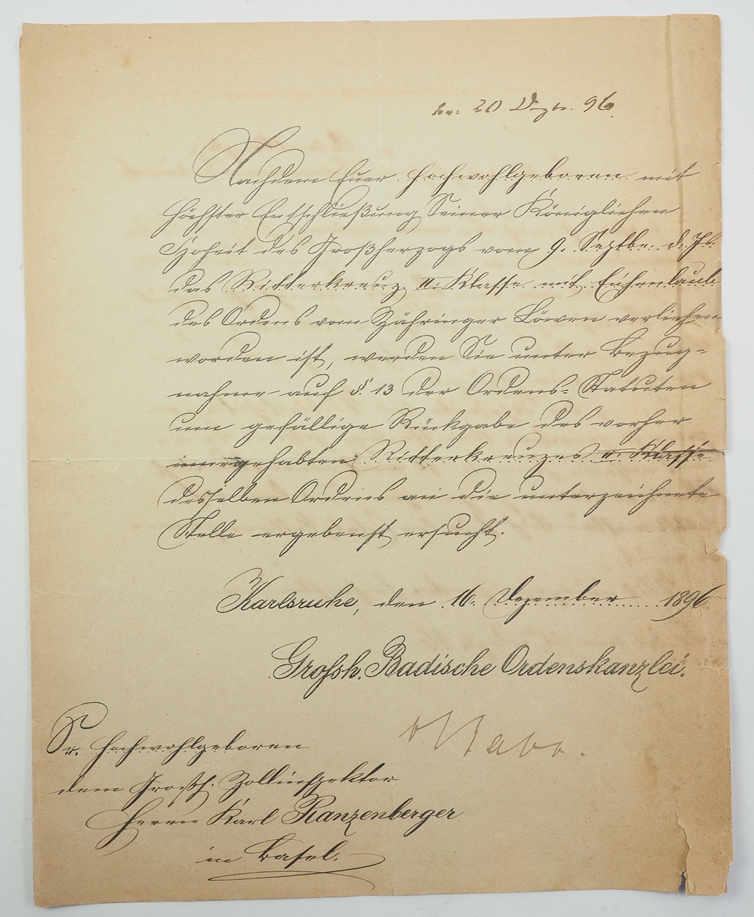 20 Dez. 96.
Nachdem Euer Hochwohlgeboren mit
Höchster Entschließung Seiner Königlichen
Hoheit des Großherzogs vom 9. Septbr. d. Js.
das Ritterkreuz II. Klasse mit Eichenlaub
des Ordens vom Zähringer Löwen verliehen
worden ist, werden Sie unter Bezug-
nahme auf §. 13 der Ordens-Statuten
um gefällige Rückgabe des vorher
innegehabten Ritterkreuzes II. Klasse
desselben Ordens an die unterzeichnete
Stelle ergebenst ersucht.
Karlsruhe, den 16. Dezember 1896
Grossh. Badische Ordenskanzlei.
Sr. Hochwohlgeboren
dem Großh. Zollinspektor
Herrn Karl Ranzenberger
in Basel.